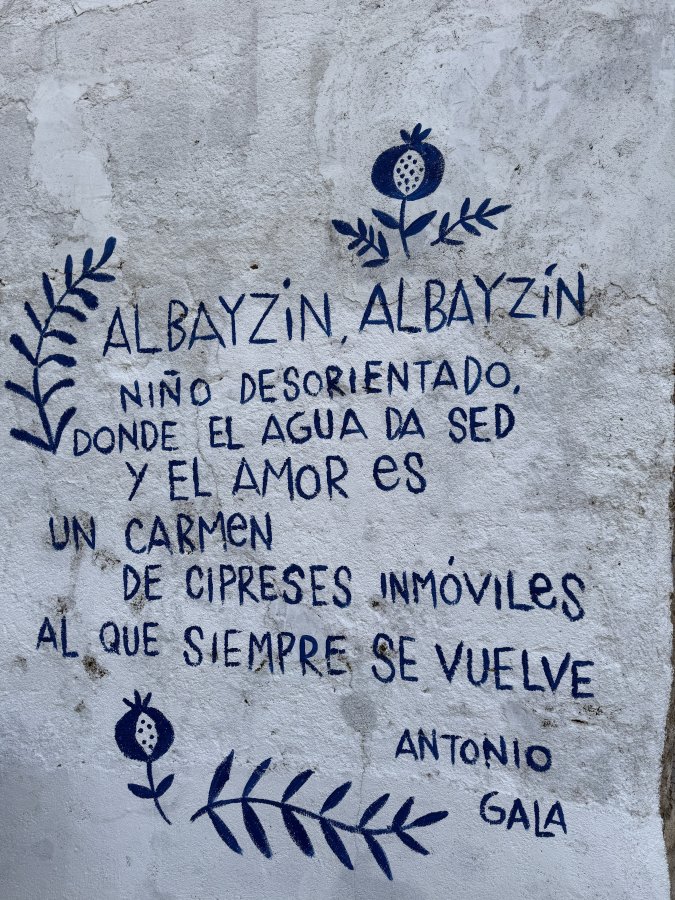 ALBAYZiN, ALBAYZíN
NIÑO DESORIENTADO,
DONDE EL AGUA DA SED
Y EL AMOR eS
UN CARMeN
DE CIPRESES INMÓVILeS
AL QUE SIEMPRE SE VUELVE
ANTONIO
GALA